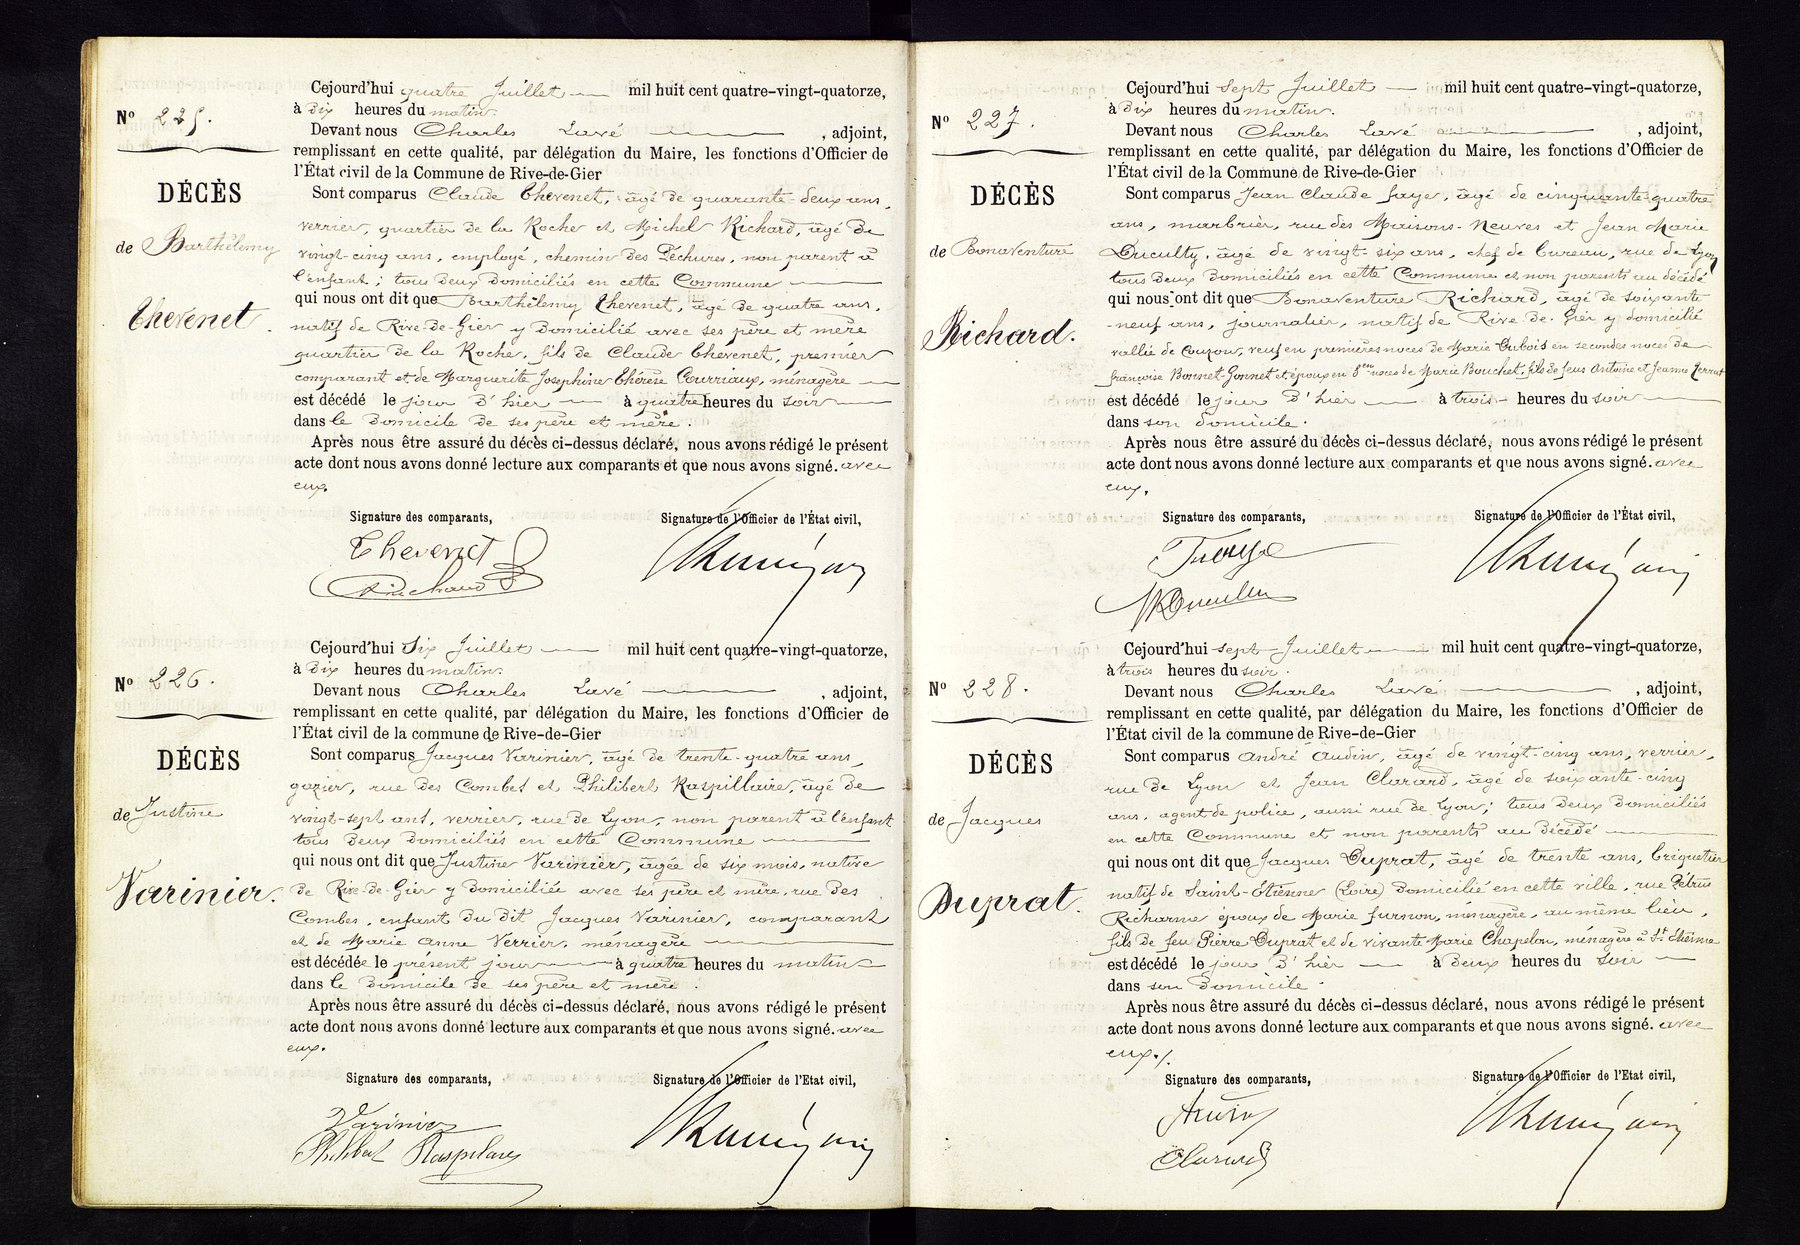 Cejourd'hui quatre Juillet mil huit cent quatre-vingt-quatorze,
à Dix heures du matin.
N° 225.
Devant nous Charles Lavé , adjoint,
remplissant en cette qualité, par délégation du Maire, les fonctions d'Officier de
l'État civil de la Commune de Rive-de-Gier
DÉCÈS
Sont comparus Claude Thevenet, âgé de quarante-deux ans,
verrier, quartier de la Roche et Michel Richard, âgé de
de Barthélemy
vingt-cinq ans, employé, chemin des Pêchures, non parent à
l'enfant ; tous deux domiciliés en cette Commune
qui nous ont dit que Barthélemy Thevenet, âgé de quatre ans,
Thevenet.
natif de Rive-de-Gier y domicilié avec ses père et mère
quartier de la Roche, fils de Claude Thévenet, premier
comparant et de Marguerite Josephine Thérèse Courriaux, ménagère
est décédé le jour d'hier à quatre heures du soir
dans le domicile de ses père et mère.
Après nous être assuré du décès ci-dessus déclaré, nous avons rédigé le présent
acte dont nous avons donné lecture aux comparants et que nous avons signé. avec
eux.
Signature des comparants, Signature de l'Officier de l'État civil,
Thevenet
Richard
Cejourd'hui Six Juillet mil huit cent quatre-vingt-quatorze,
à Dix heures du matin.
N° 226.
Devant nous Charles Lavé , adjoint,
remplissant en cette qualité, par délégation du Maire, les fonctions d'Officier de
l'État civil de la commune de Rive-de-Gier
DÉCÈS
Sont comparus Jacques Varinier, âgé de trente-quatre ans,
gazier, rue des Combes et Philibert Raspillaire, âgé de
de Justine
vingt-sept ans, verrier, rue de Lyon, non parent à l'enfant
tous deux domiciliés en cette Commune
qui nous ont dit que Justine Varinier, âgée de six mois, native
Varinier.
de Rive-de-Gier y domiciliée avec ses père et mère, rue des
Combes, enfant du dit Jacques Varinier, comparant
et de Marie Anne Verrier, ménagère
est décédée le présent jour à quatre heures du matin
dans le domicile de ses père et mère.
Après nous être assuré du décès ci-dessus déclaré, nous avons rédigé le présent
acte dont nous avons donné lecture aux comparants et que nous avons signé. avec
eux.
Signature des comparants, Signature de l'Officier de l'Etat civil,
Varinier
Philibert Raspilaire
Cejourd'hui sept Juillet mil huit cent quatre-vingt-quatorze,
à Dix heures du matin.
N° 227.
Devant nous Charles Lavé , adjoint,
remplissant en cette qualité, par délégation du Maire, les fonctions d'Officier de
l'État civil de la Commune de Rive-de-Gier
DÉCÈS
Sont comparus Jean Claude Faye, âgé de cinquante-quatre
ans, marbrier, rue des Maisons-Neuves et Jean Marie
de Bonaventure
Duculty, âgé de vingt-six ans, chef de bureau, rue de Lyon
tous deux domiciliés en cette Commune et non parents au décédé
qui nous ont dit que Bonaventure Richard, âgé de soixante
Richard.
-neuf ans, journalier, natif de Rive-de-Gier y domicilié
vallée de Couzon, veuf en premières noces de Marie Dubois en secondes noces de
françoise Bonnet-Gonnet et époux en 3èmes noces de Marie Bouchet, fils de feus Antoine et Jeanne
est décédé le jour d'hier à trois heures du soir
dans son domicile.
Après nous être assuré du décès ci-dessus déclaré, nous avons rédigé le présent
acte dont nous avons donné lecture aux comparants et que nous avons signé. avec
eux.
Signature des comparants, Signature de l'Officier de l'État civil,
Cejourd'hui sept Juillet mil huit cent quatre-vingt-quatorze,
à trois heures du soir.
N° 228.
Devant nous Charles Lavé , adjoint,
remplissant en cette qualité, par délégation du Maire, les fonctions d'Officier de
l'État civil de la commune de Rive-de-Gier
DÉCÈS
Sont comparus André Audin, âgé de vingt-cinq ans, verrier,
rue de Lyon et Jean Clarard, âgé de soixante-cinq
de Jacques
ans, agent de police, aussi rue de Lyon ; tous deux domiciliés
en cette Commune et non parents au décédé
qui nous ont dit que Jacques Duprat, âgé de trente ans, briquetier
Duprat.
natif de Saint-Etienne (Loire) domicilié en cette ville, rue Pétrus
Richarme époux de Marie Furnon, ménagère, au même lieu,
fils de feu Pierre Duprat et de vivante Marie Chapelon, ménagère à St-Etienne
est décédé le jour d'hier à deux heures du soir
dans son domicile.
Après nous être assuré du décès ci-dessus déclaré, nous avons rédigé le présent
acte dont nous avons donné lecture aux comparants et que nous avons signé. avec
eux./.
Signature des comparants, Signature de l'Officier de l'Etat civil,
Audin
Clarard